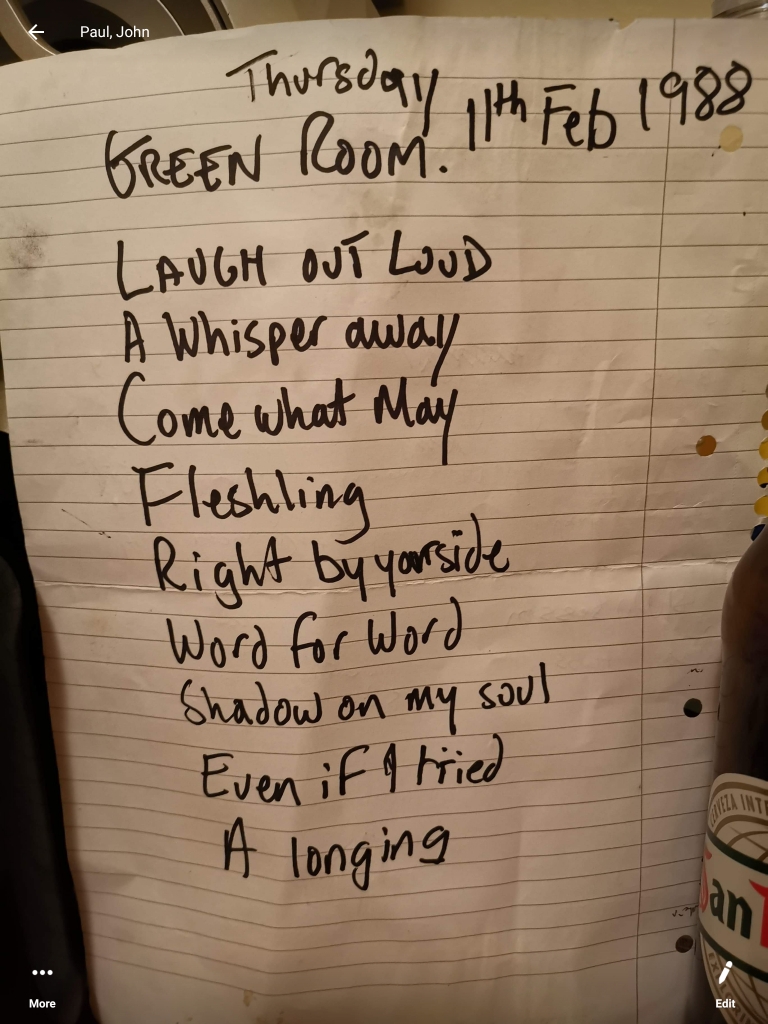 Paul, John
Thursday
GREEN ROOM. 11th Feb 1988
LAUGH OUT LOUD
A Whisper away
Come what May
Fleshling
Right by yourside
Word for Word
Shadow on my soul
Even if I tried
A longing
CERVEZA INTE
San
More
Edit